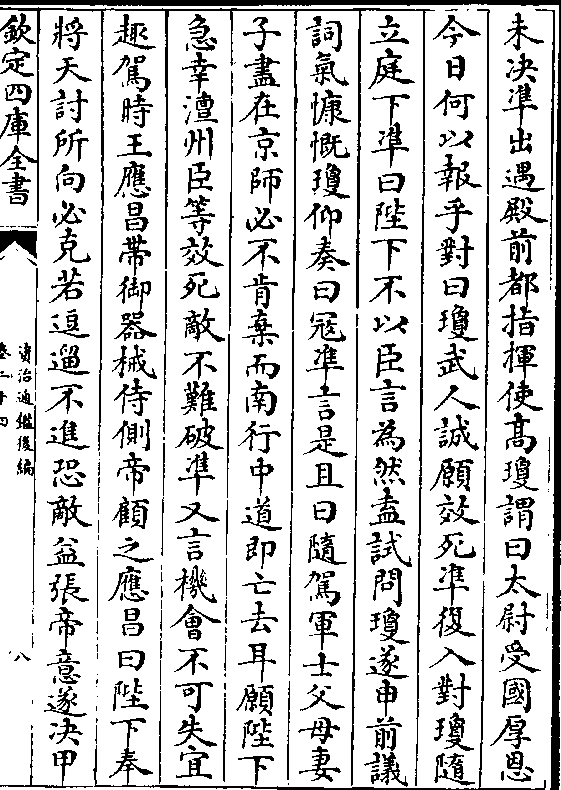 未决凖出遇殿前都指揮使髙瓊謂曰太尉受國厚恩
今日何以報乎對曰瓊武人誠願效死凖復入對瓊隨
立庭下凖曰陛下不以臣言為然盍試問瓊遂申前議
詞氣慷慨瓊仰奏曰冦凖言是且曰隨駕軍士父母妻
子盡在京師必不肯棄而南行中道即亡去耳願陛下
急幸澶州臣等效死敵不難破凖又言機會不可失宜
趣駕時王應昌帶御器械侍側帝顧之應昌曰陛下奉
將天討所向必克若逗遛不進恐敵益張帝意遂决甲
欽定四庫全書
資治通鑑後編
卷二十四
八